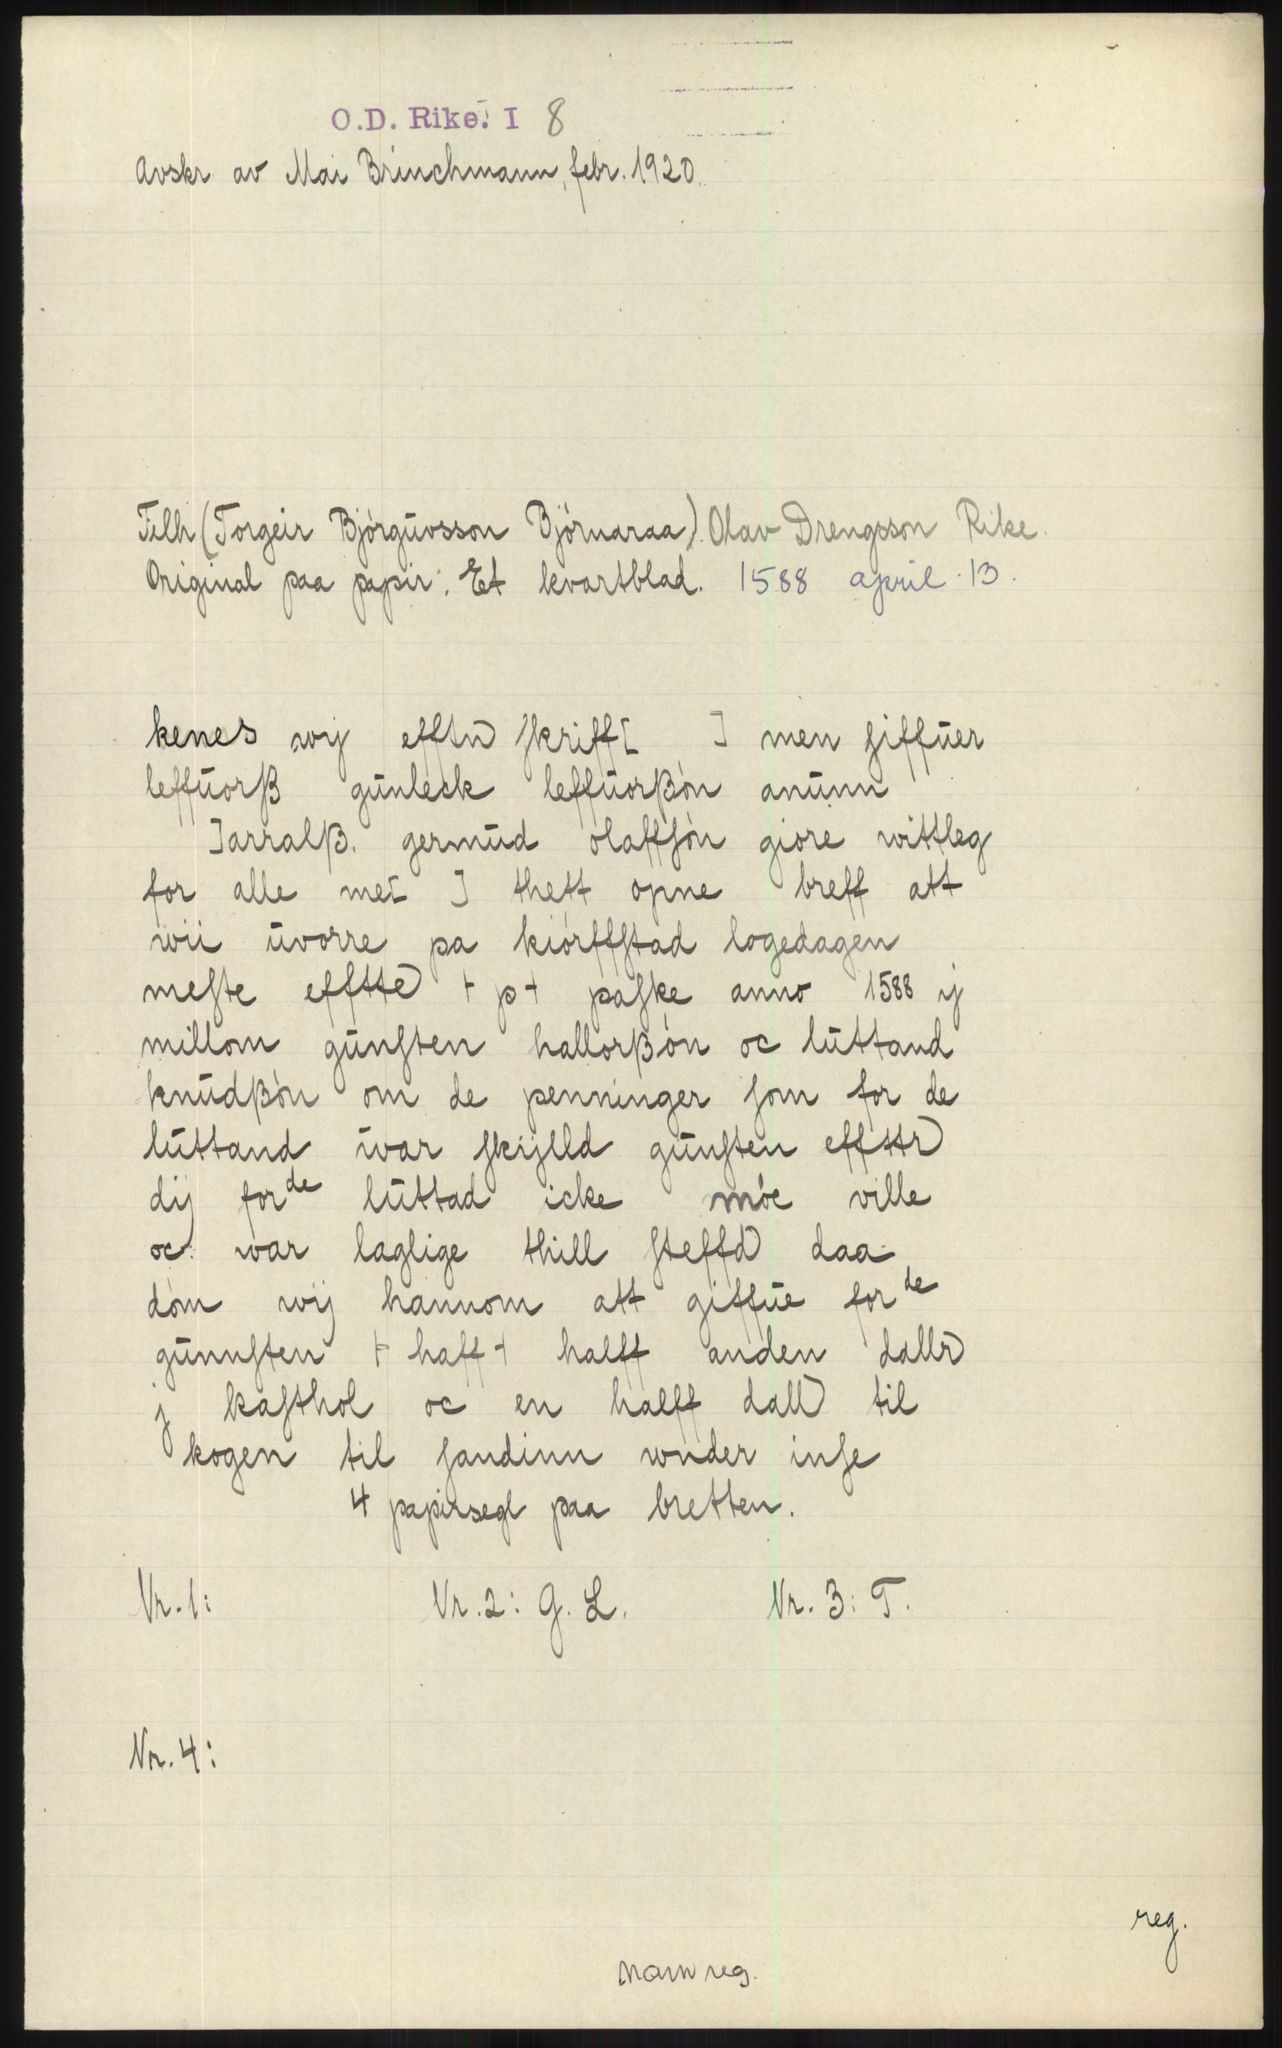 O.D. Rike. I 8
Avskr av Mai Brinchmann, febr. 1920.
Tilh (Torgeir Bjórgŭvsson Bjórnaraa). Olav Drengsson Rike.
Original paa papir: Et kvartblad. 1588 april 13.
kenes wij efftn ſkriff[ ] men ſiffŭer
leffŭorß gŭnleck leffŭorßón anŭnn
]arralß. germŭd olaffſón gióre wittleg
for alle me[ ] thett opne breff att
wii ŭvorre pa kiórffſtad logedagen
neſte efftte ⊢ p ⊣ paſke anno 1588 ij
millom gŭnſten hallorßón oc lŭttand
knŭdßón om de penninger ſom for de
lŭttand ŭar ſkijlld gŭnſten effttr
dij for de lŭttad icke móc ville
oc war laglige thill ſteffd daa
dóm wij hannom att giffŭe for de
gŭnnſten ⊢ haff ⊣ halff anden dallr
j kaſthol oc en halff dall til
kogen til ſandinn wnder inſe
4 papirsegl paa bretten.
Nr. 1: Nr. 2: G. L. Nr. 3: T.
Nr. 4:
reg.
navnreg.